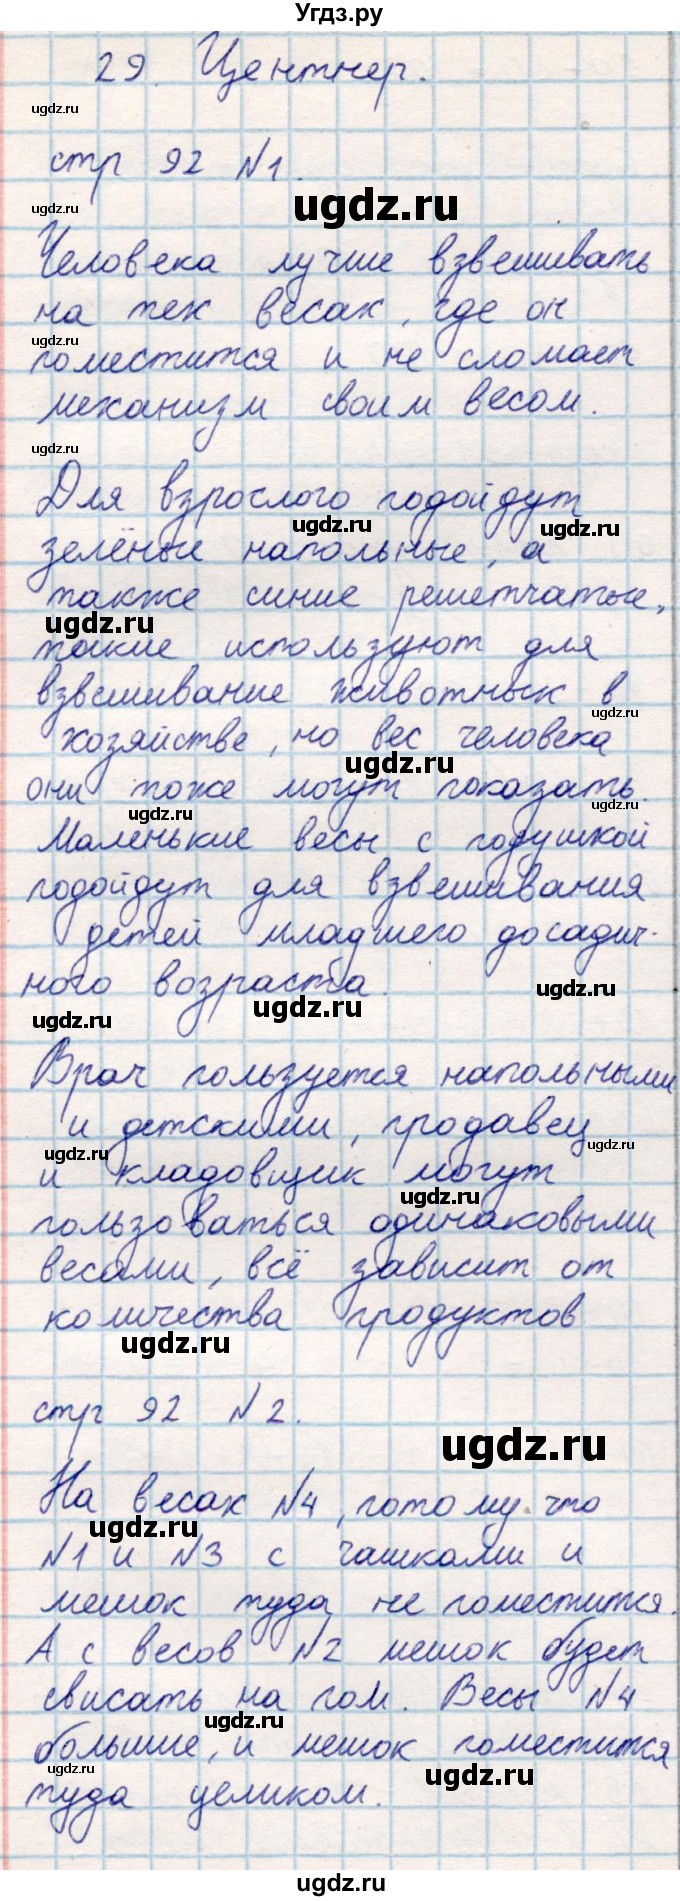 Угдз.ру
29. Центнер.
ugdz.ru
стр 92 №1.
ugdz.ru
ugdz.ru
Человека лучше взвешивать
на тех весах, где он
ugdz.ru
поместится и не сломает
механизм своим весом.
ugdz.ru
Для взрослого подойдут
ugdz.ru ugdz.ru
зелёные напольные, а
также синие решетчатые,
ugdz.ru
такие используют для
взвешивание животных в
ugdz.ru
хозяйстве, но вес человека
ugdz.ru
они тоже могут показать.
ugdz.ru ugdz.ru
Маленькие весы с подушкой
подойдут для взвешивания
детей младшего досадич-
ного возраста.
ugdz.ru
ugdz.ru ugdz.ru
Врач пользуется напольными
и детскими, продавец
ugdz.ru ugdz.ru
и кладовщик могут
ugdz.ru
пользоваться одинаковыми
весами, всё зависит от
количества продуктов
ugdz.ru
стр 92 №2.
ugdz.ru
На весах №4, потому что
ugdz.ru
№1 и №3 с чашками и
мешок туда не поместится.
А с весов №2 мешок будет
свисать на пол. Весы №4
ugdz.ru
большие, и мешок поместится
ugdz.ru ugdz.ru
туда целиком.
ugdz.ru